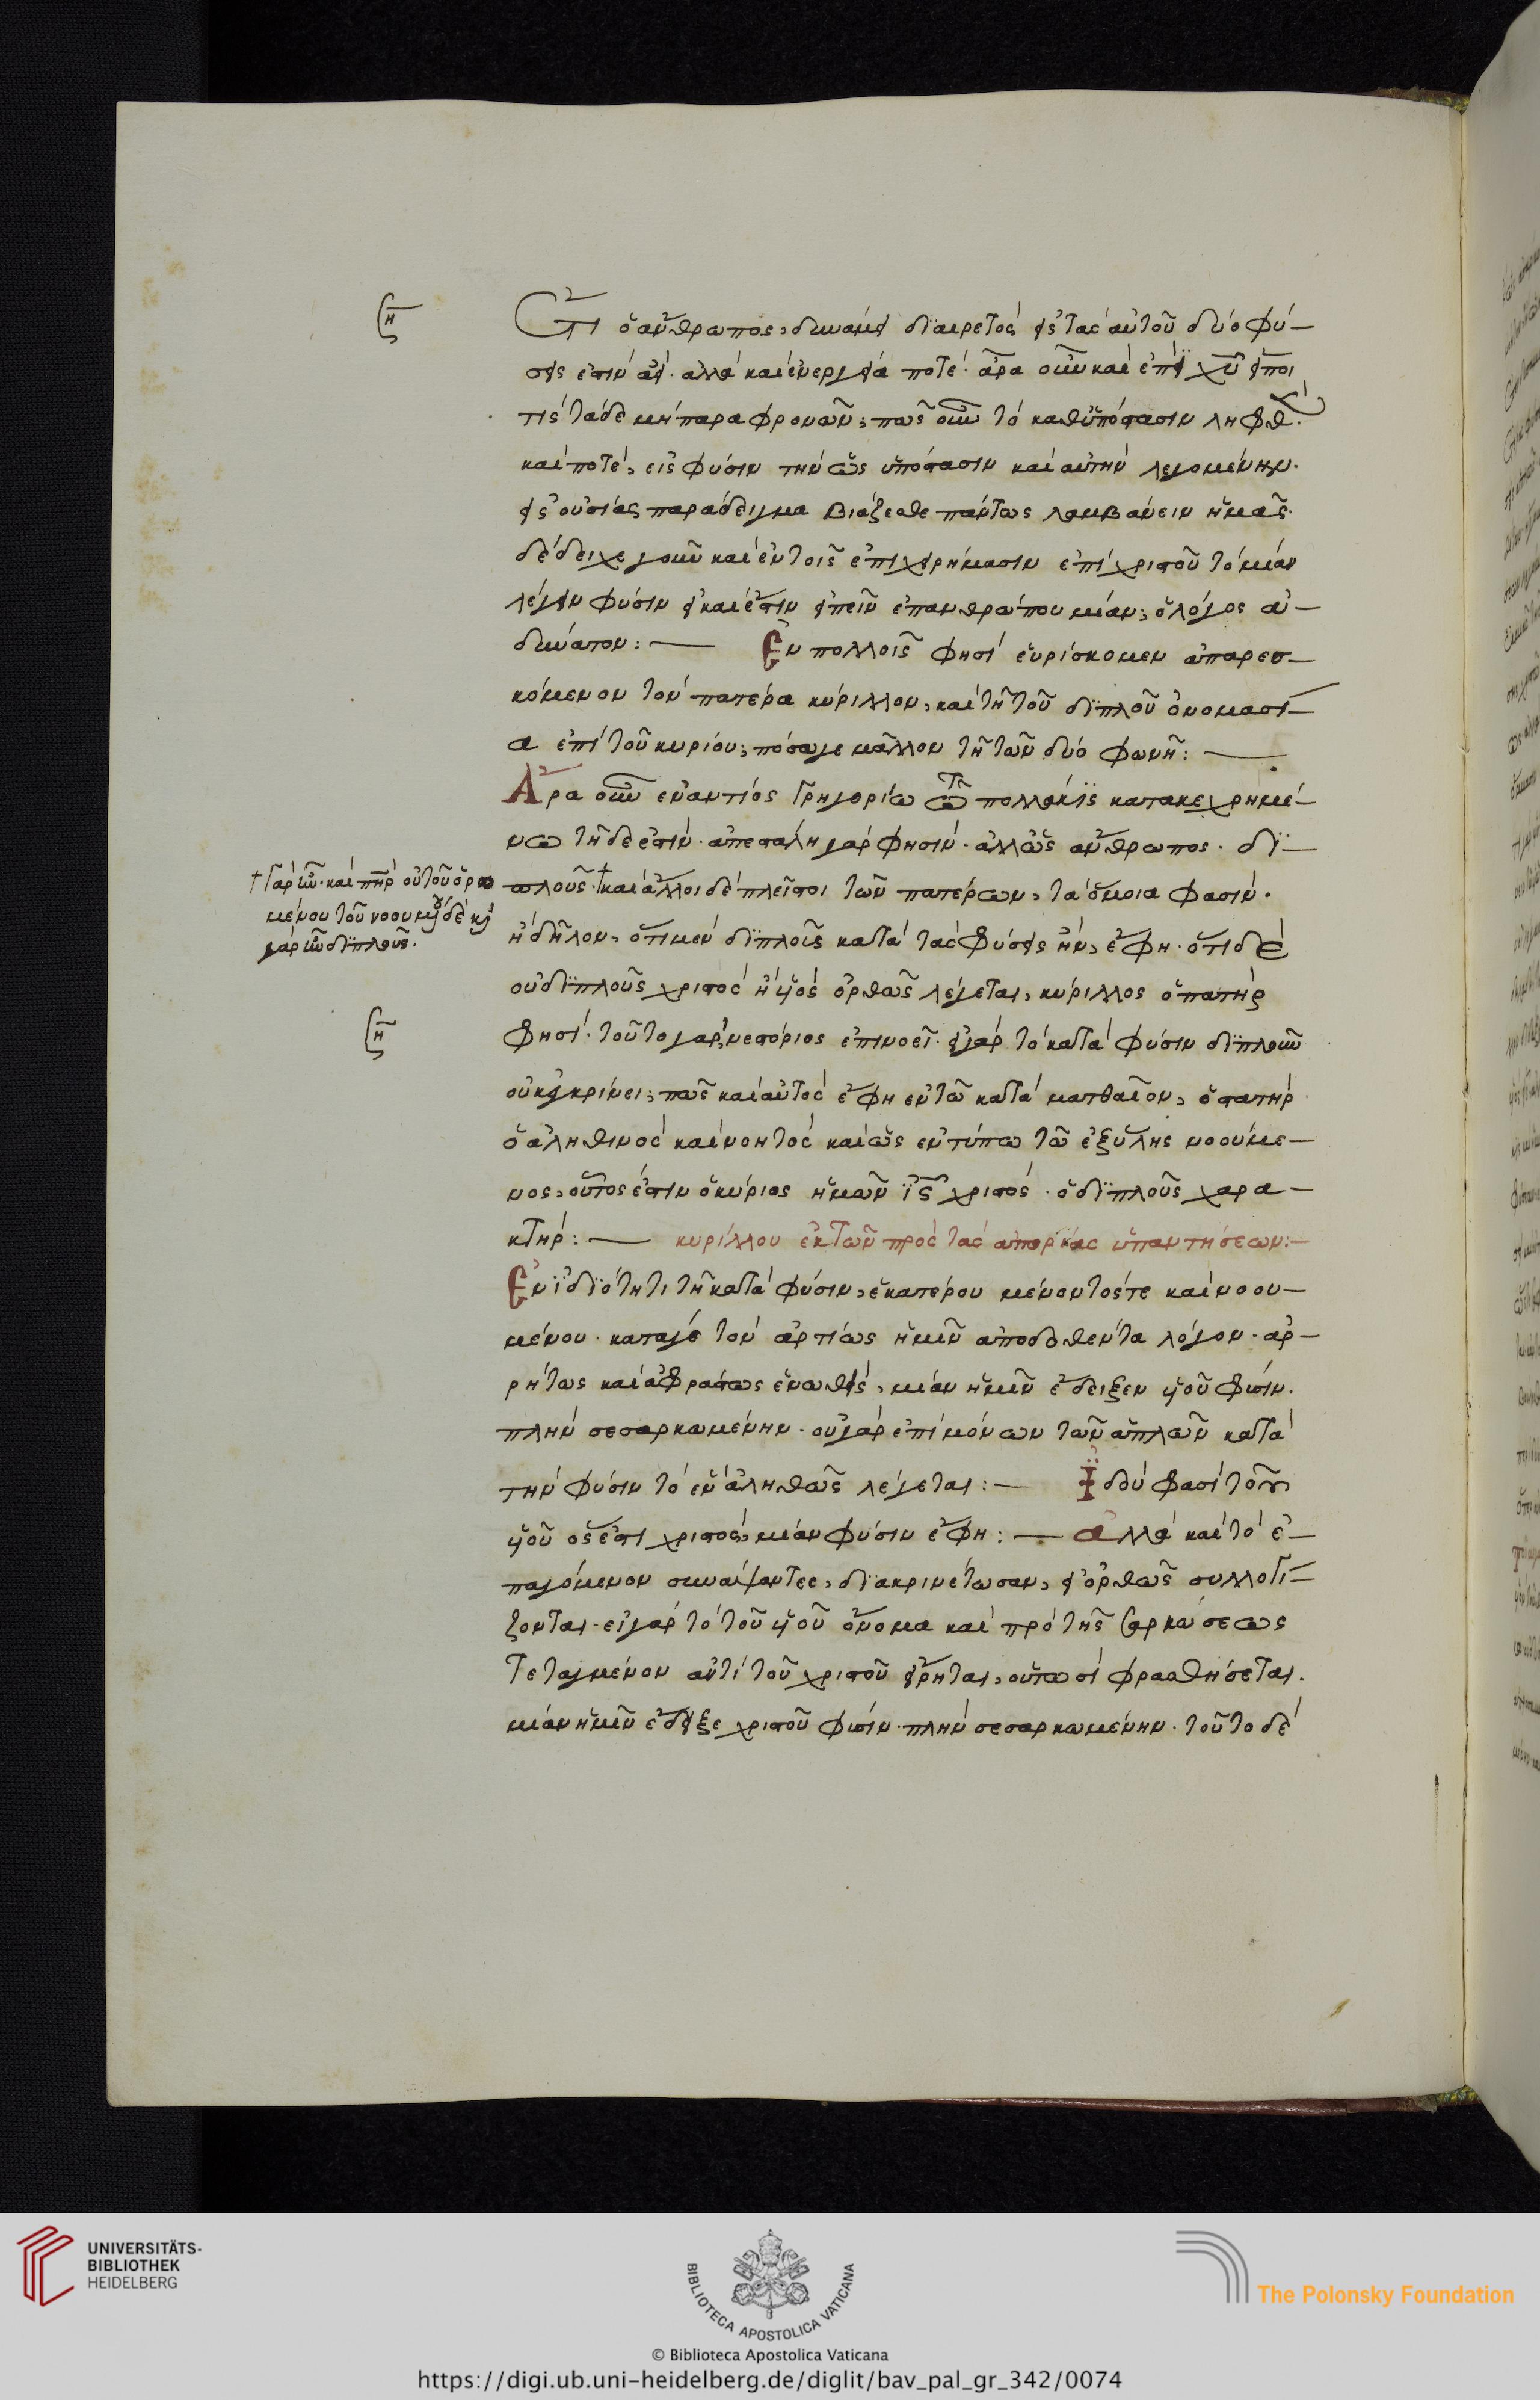 ὁ ἄνθρωπος, δυνάμει διαιρετὸς εἰς τὰς αὐτοῦ δύο φύ-
σεις ἐστὶν ἀεί. ἀλλὰ καὶ ἐνεργείᾳ ποτέ. ἆρα οὖν καὶ ἐπὶ χυ εἴποι
τὶς τάδε μὴ παραφρονῶν; πῶς οὖν τὸ καθ' ὑπόστασιν
καὶ ποτὲ, εἰς φύσιν τὴν ὡς ὑπόστασιν καὶ αὐτὴν λεγομένην.
εἰς οὐσίας παράδειγμα βιάζεσθε πάντως λαμβάνειν ἡμᾶς.
δέδειχε γοῦν καὶ ἐν τοῖς ἐπιχειρήμασιν ἐπὶ χριστοῦ τὸ μίαν
λέγειν φύσιν εἰ καὶ ἔστιν εἰπεῖν ἐπ' ἀνθρώπου μίαν, ὁ λόγος ἀ-
δυνατον: — Ἐν πολλοῖς φησὶ εὑρίσκομεν ἀπαρεσ-
κόμενον τὸν πατέρα κύριλλον, καὶ τῇ τοῦ διπλοῦ ὀνομασί-
α ἐπὶ τοῦ κυρίου; πόσωγε μᾶλλον τῇ τῶν δύο φωνῇ: —
Ἆρα οὖν ἐναντίος Γρηγορίω πολλάκις κατακεχρημέ-
νω τῇδε ἐστίν. ἀπεστάλη γάρ φησιν. ἀλλ' ὡς ἄνθρωπος. δι-
πλοῦς. † καὶ ἄλλοι δὲ πλεῖστοι τῶν πατέρων, τὰ ὅμοια φασίν.
† Γὰρ ἦν. καὶ πηρ οὐ τοῦ ὁρω
μένου τοῦ νοουμένου δὲ καὶ
γὰρ ἦν διπλοῦς.
ἢ δῆλον, ὅτι μὲν διπλοῦς κατὰ τὰς φύσεις ἦν, ἔφη. ὅτι δὲ
οὐ διπλοῦς χριστὸς ἢ υἱὸς ὀρθῶς λέγεται, κύριλλος ὁ πατὴρ
φησί. τοῦτο γὰρ νεστόριος ἐπινοεῖ. εἰ γὰρ τὸ κατὰ φύσιν διπλοῦν
οὐκ ἐγκρίνει; πῶς καὶ αὐτὸς ἔφη ἐν τῶ κατὰ ματθαῖον, ὁ στατὴρ
ὁ ἀληθινὸς καὶ νοητὸς καὶ ὡς ἐν τύπω τῶ ἐξ ὕλης νοούμε-
νος, οὗτος ἐστιν ὁ κύριος ἡμῶν ις χριστὸς. ὁ διπλοῦς χαρα-
κτήρ: — κυρίλλου ἐκ τῶν πρὸς τὰς ἀπορίας ὑπαντήσεων:—
Ἐν ἰδιότητι τῇ κατὰ φύσιν, ἑκατέρου μένοντός τε καὶ νοου-
μένου. κατάγε τὸν ἀρτίως ἡμῖν ἀποδοθέντα λόγον. ἀρ-
ρήτως καὶ ἀφράστως ἑνωθεὶς, μίαν ἡμῖν ἔδειξεν υἱοῦ φύσιν.
πλὴν σεσαρκωμένην. οὐ γὰρ ἐπὶ μόνων τῶν ἁπλῶν κατὰ
τὴν φύσιν τὸ ἓν ἀληθῶς λέγεται: — Ἰδοὺ φασὶ τοῦ
υἱοῦ ὅς ἐστι χριστὸς, μίαν φύσιν ἔφη: — ἀλλὰ καὶ τὸ ἐ-
παγόμενον συνάψαντες, διακρινέτωσαν, εἰ ὀρθῶς συλλογί-
ζονται. εἰ γὰρ τὸ τοῦ υἱοῦ ὄνομα καὶ πρὸ τῆς σαρκώσεως
τεταγμένον ἀντὶ τοῦ χριστοῦ εἴρηται, οὕτωσὶ φρασθήσεται.
μίαν ἡμῖν ἔδειξε χριστοῦ φύσιν. πλὴν σεσαρκωμένην. τοῦτο δὲ
UNIVERSITÄTS-
BIBLIOTHEK
HEIDELBERG
BIBLIOTECA APOSTOLICA VATICANA
The Polonsky Foundation
© Biblioteca Apostolica Vaticana
https://digi.ub.uni-heidelberg.de/diglit/bav_pal_gr_342/0074